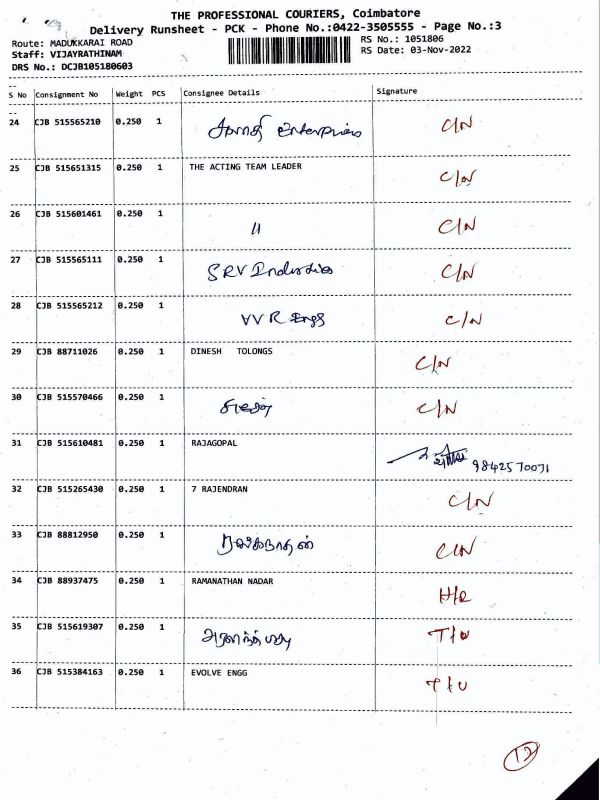 THE PROFESSIONAL COURIERS, Coimbatore
Delivery Runsheet - PCK - Phone No.:0422-3505555 - Page No.:3
Route: MADUKKARAI ROAD RS No.: 1051806
Staff: VIJAYRATHINAM RS Date: 03-Nov-2022
DRS No.: DCJB105180603
S No Consignment No Weight PCS Consignee Details Signature
24 CJB 515565210 0.250 1 Enterprises C/N
25 CJB 515651315 0.250 1 THE ACTING TEAM LEADER C/N
26 CJB 515601461 0.250 1 11 C/N
27 CJB 515565111 0.250 1 SRV Industries C/N
28 CJB 515565212 0.250 1 VVR Engg C/N
29 CJB 88711026 0.250 1 DINESH TOLONGS C/N
30 CJB 515570466 0.250 1 C/N
31 CJB 515610481 0.250 1 RAJAGOPAL 9842570071
32 CJB 515265430 0.250 1 7 RAJENDRAN C/N
33 CJB 88812950 0.250 1 C/N
34 CJB 88937475 0.250 1 RAMANATHAN NADAR H/R
35 CJB 515619307 0.250 1 T/U
36 CJB 515384163 0.250 1 EVOLVE ENGG T/U
12